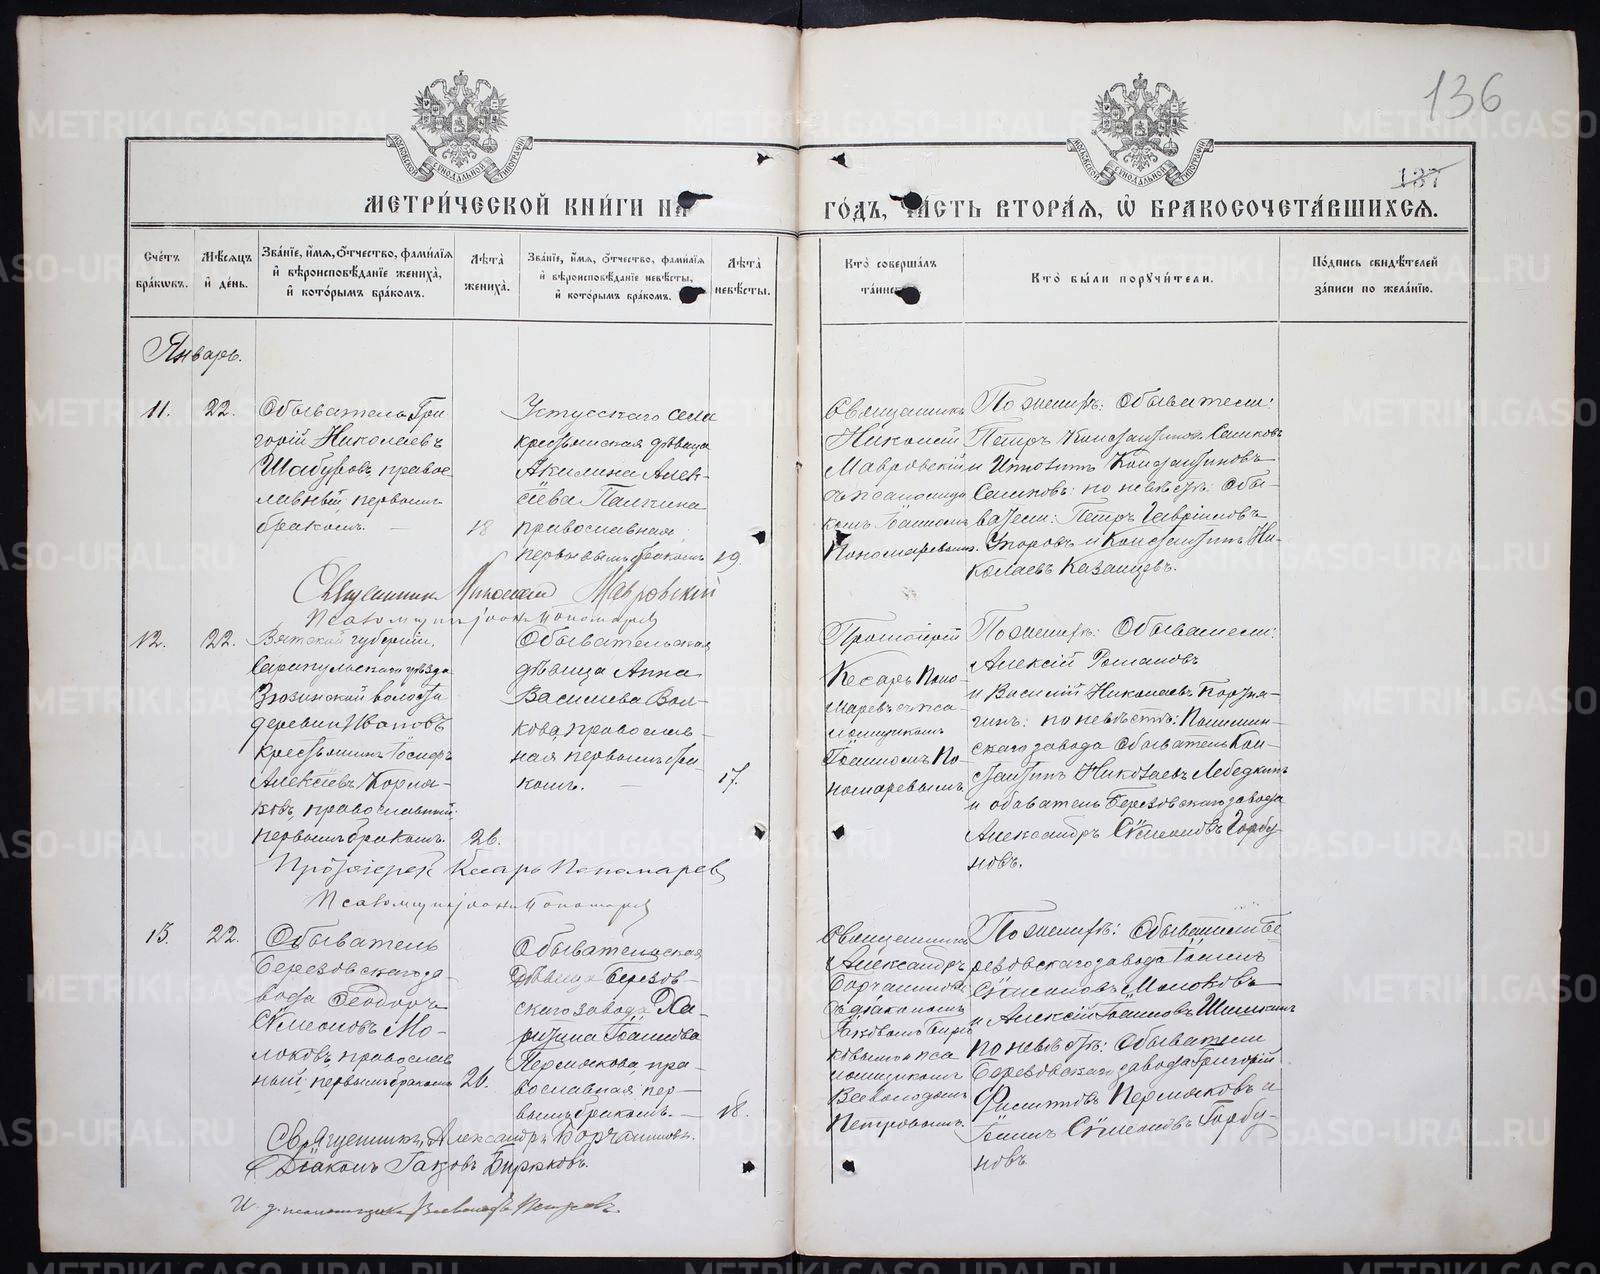 136
137
МОСКОВСКОЙ СѴНОДАЛЬНОЙ ТИПОГРАФІИ
МОСКОВСКОЙ СѴНОДАЛЬНОЙ ТИПОГРАФІИ
МЕТРИ́ЧЕСКОЙ КНИ́ГИ НА
ГО́ДЪ, ЧА́СТЬ ВТОРА́Я, Ѡ БРАКОСОЧЕТА́ВШИХСЯ.
Сче́тъ бра́кѡвъ.
Мѣ́сяцъ и де́нь.
Зва́нїе, и́мя, о́тчество, фами́лїя и вѣроисповѣ́данїе жениха̀, и кото́рымъ бра́комъ.
Лѣ́та жениха̀.
Зва́нїе, и́мя, о́тчество, фами́лїя и вѣроисповѣ́данїе невѣ́сты, и кото́рымъ бра́комъ.
Лѣ́та невѣ́сты.
Кто̀ соверша́лъ
Кто̀ бы́ли поручи́тели.
По́дпись свидѣ́телей за́писи по жела́нїю.
Январь.
11.
22.
Обыватель Гри-
горій Николаевъ
Шабуровъ, правос-
лавный, первымъ
бракомъ.
18
Устусскаго села
крестьянская дѣвица
Акилина Алек-
сіева Палкина
православная,
первымъ бракомъ
19.
Священникъ
Николай
Мавровскій
съ псаломщи-
комъ Іоанномъ
Пономаревымъ.
По женихѣ: Обыватели:
Петръ Константиновъ Сашковъ
и Константиновъ
Сашковъ: по невѣстѣ: Обы-
ватели: Петръ Гавріиловъ
и Константинъ Ни-
колаевъ Казанцевъ.
Священникъ Николай Мавровскій
Псаломщикъ Іоаннъ Пономаревъ
12.
22.
Вятской губерніи,
Сарапульскаго уѣзда
волости
деревни Ивановъ
крестьянинъ Іосифъ
Алексіевъ Корня-
ковъ, православный
первымъ бракомъ.
26.
Обывательская
дѣвица Анна
Васильева Вол-
кова, православ-
ная первымъ бра-
комъ.
17.
Протоіерей
Кесарь Поно-
маревъ съ пса-
ломщикомъ
Іоанномъ По-
номаревымъ
По женихѣ: Обыватели:
Алексій Романовъ
и Василій Николаевъ
по невѣстѣ:
скаго завода обыватель Кон-
стантинъ Николаевъ Лебедкинъ
и обыватель Березовскаго завода
Александръ Сѵмеоновъ Горбу-
новъ.
Протоіерей Кесарь Пономаревъ
Псаломщикъ Іоаннъ Пономаревъ
13.
22.
Обыватель
Березовскаго за-
вода Ѳеодоръ
Сѵмеоновъ Мо-
локовъ, православ-
ный, первымъ бракомъ
26.
Обывательская
дѣвица Березов-
скаго завода Ха-
ритина Іоаннова
Пермякова, пра-
вославная, пер-
вымъ бракомъ.
18.
Священникъ
Александръ
Борчаниновъ
съ діакономъ
Іаковомъ Бирю-
ковымъ и пса-
ломщикомъ
Всеволодомъ
Петровымъ.
По женихѣ: Обыватели Бе-
резовскаго завода Іоаннъ
Сѵмеоновъ Молоковъ
и Алексій Іоанновъ Шишкинъ
по невѣстѣ: Обыватели
Березовскаго завода Григорій
Филипповъ Пермяковъ и
Іоаннъ Сѵмеоновъ Горбу-
новъ
Священникъ Александръ Борчаниновъ.
Діаконъ Іаковъ Бирюковъ.
И. д. псаломщика Всеволодъ Петровъ
METRIKI.GASO-URAL.RU